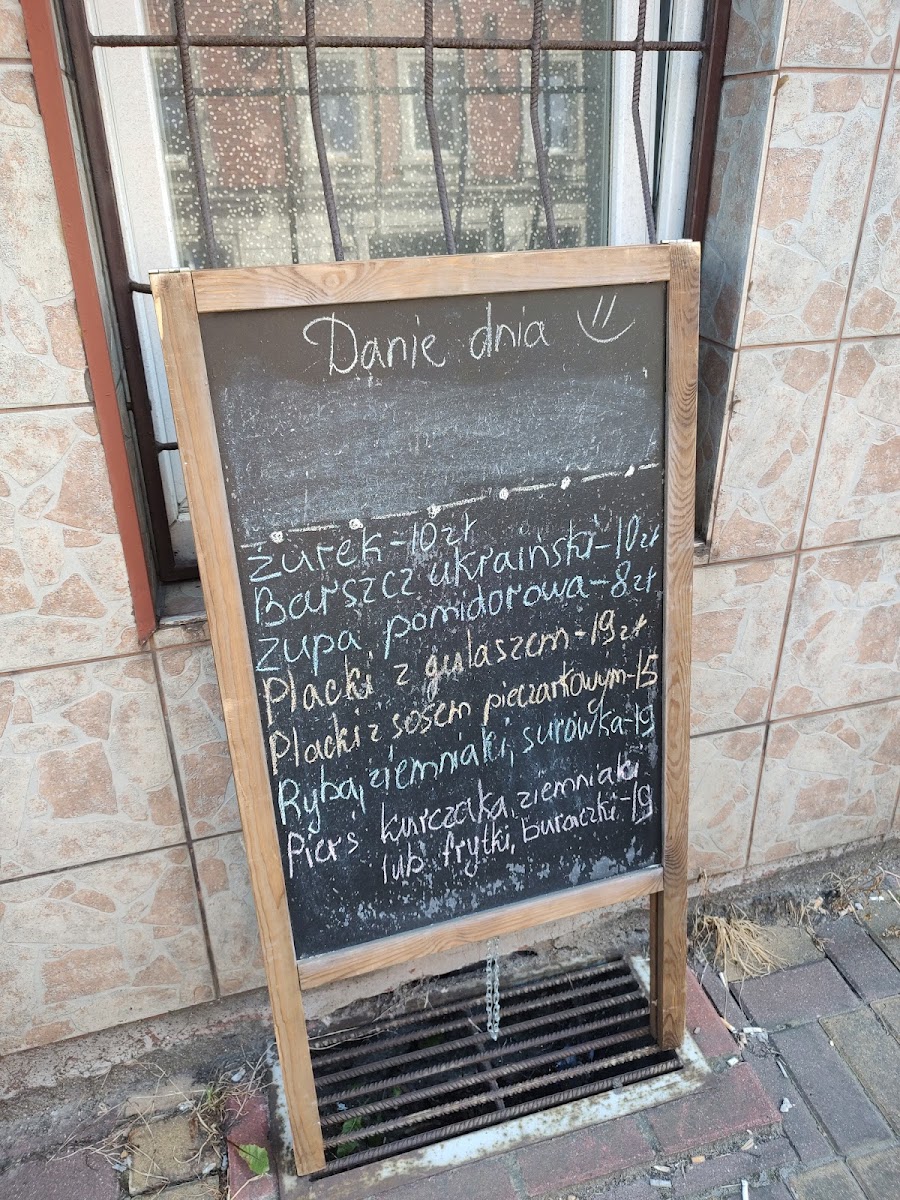 Danie dnia
Żurek - 10 zł
Barszcz ukraiński - 10 zł
Zupa pomidorowa - 8 zł
Placki z gulaszem - 19 zł
Placki z sosem pieczarkowym - 15
Ryba, ziemniaki, surówka - 19
Pierś kurczaka, ziemniaki
lub frytki, buraczki - 19